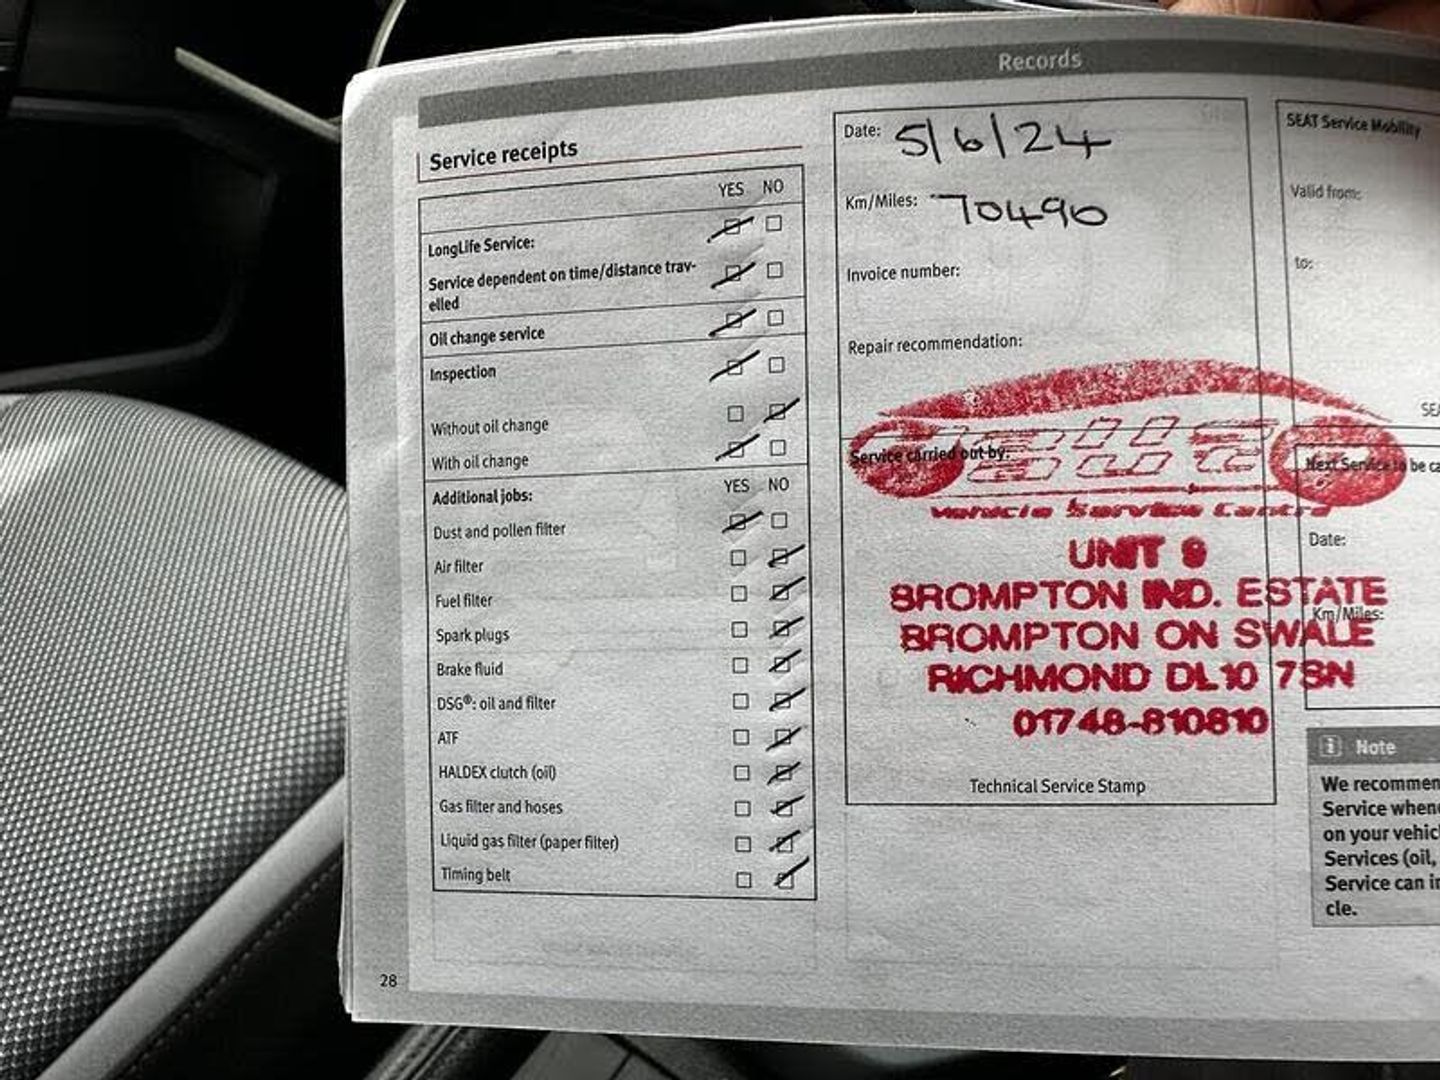 Records
Service receipts
YES NO
LongLife Service:
Service dependent on time/distance trav-
elled
Oil change service
Inspection
Without oil change
With oil change
Additional jobs:
YES NO
Dust and pollen filter
Air filter
Fuel filter
Spark plugs
Brake fluid
DSG®: oil and filter
ATF
HALDEX clutch (oil)
Gas filter and hoses
Liquid gas filter (paper filter)
Timing belt
28
Date: 5/6/24
Km/Miles: 70490
Invoice number:
Repair recommendation:
Service carried out by:
Vehicle Service Centre
UNIT 9
BROMPTON IND. ESTATE
BROMPTON ON SWALE
RICHMOND DL10 7SN
01748-810810
Technical Service Stamp
SEAT Service Mobility
Valid from:
to:
Next Service to be
Date:
Km/Miles:
Note
We
Service
on your
Services (oil,
Service can
cle.